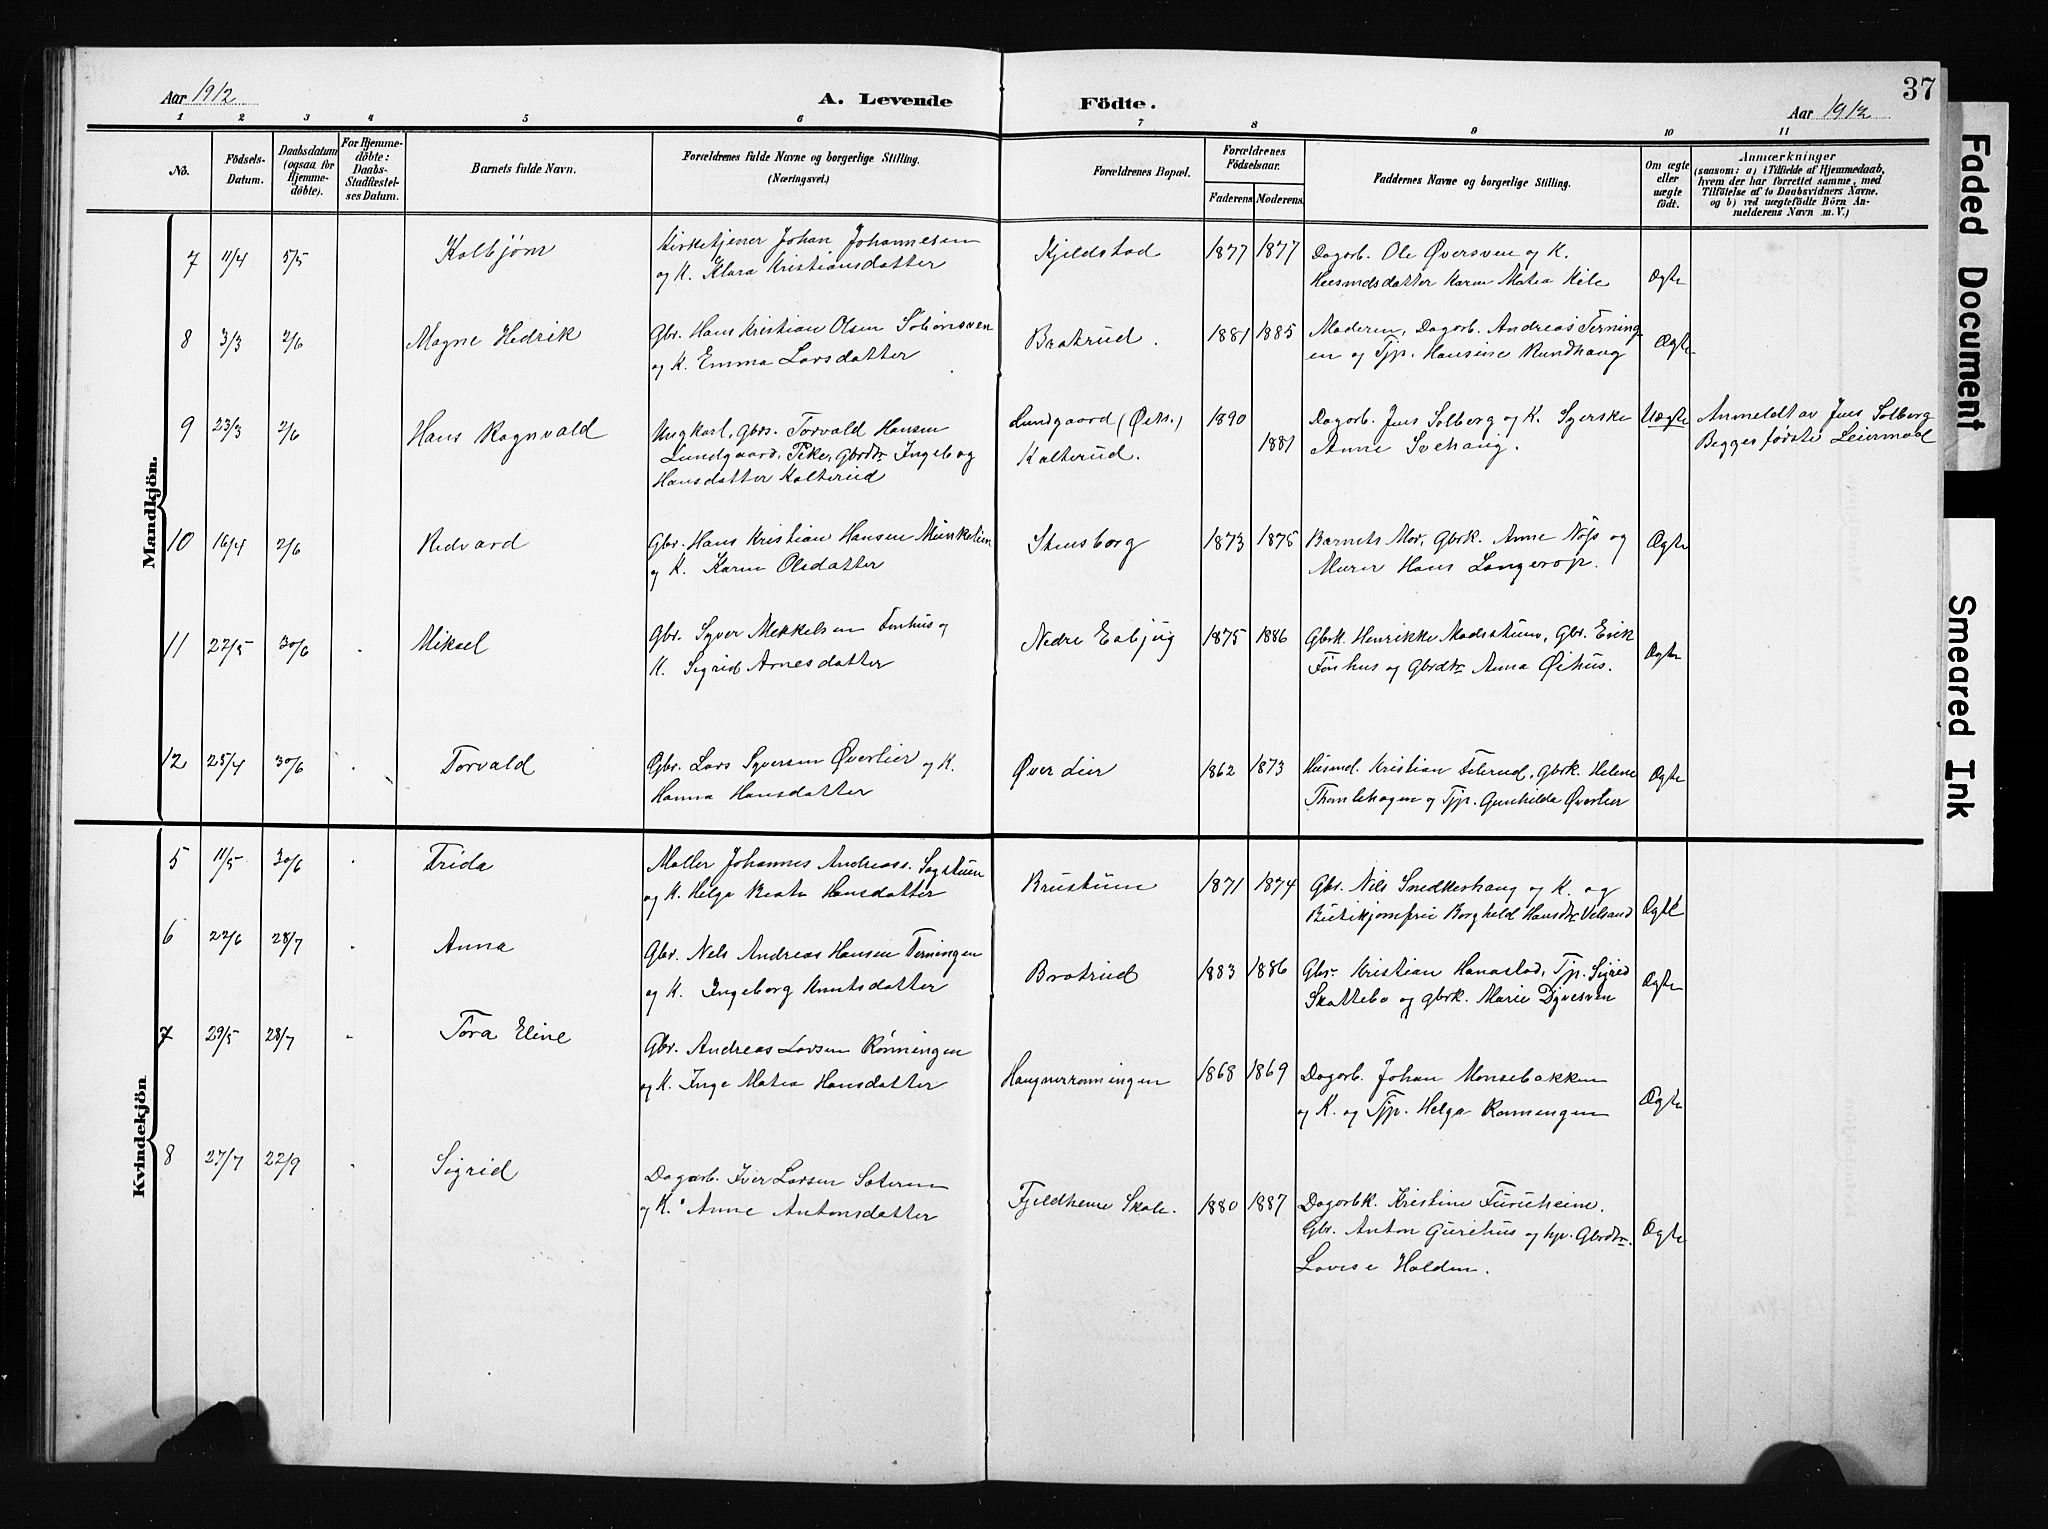 37
Aar 1912
A. Levende
Födte.
Aar 1912
1 2 3 4 5 6 7 8 9 10 11
No.
Födsels-
Datum.
Daabsdatum
(ogsaa for
Hjemme-
döbte).
For Hjemme-
döbte:
Daabs-
Stadfæstel-
ses Datum.
Barnets fulde Navn.
Forældrenes fulde Navne og borgerlige Stilling.
(Næringsvei.)
Forældrenes Bopæl.
Forældrenes
Födselsaar.
Faderens
Moderens
Faddernes Navne og borgerlige Stilling.
Om ægte
eller
uægte
födt.
Anmærkninger
(saasom: a) i Tilfælde af Hjemmedaab,
hvem der har forrettet samme, med
Tilföielse af to Daabsvidners Navne.
og b) ved uægtefödte Börn An-
melderens Navn m. V.)
Mandkjön.
7 11/4 5/5 Kolbjørn
Kirketjener Johan Johannesen
og K. Klara Kristiansdatter
Kjeldstad 1877 1877
Dagarb. Ole Øversveen og K.
Husmdsdatter Karen Matea Kile
Ægte
8 3/3 2/6 Magne Hedrik
Gbr. Hans Kristian Olsen
og K. Emma Larsdatter
Bratrud. 1881 1885
Moderen, Dagarb. Andreas Terning
en og Tjp. Hansine Rundhaug
Ægte
9 23/3 2/6 Hans Ragnvald
Ungkarl, Gbrs. Torvald Hansen
Lundgaard, Pike, Gbrdtr. Ingeborg
Hansdatter Kalterud
Lundgaard (Ø
Kalterud.
1890
1881
Dagarb. Jens Solberg og K. Syerske
Anne Svehaug.
Uægte
Anmeldt av Jens Solberg
Begges første Leiermaal
10 16/4 2/6 Redvard
Gbr. Hans Kristian Hansen Munkelien
og K. Karen Olsdatter
Stensborg 1873 1875
Barnets Mor, Gbrk. Anne Nøss og
Murer Hans Langerop.
Ægte
11 22/5 30/6 Mikael
Gbr. Syver Mekkelsen Finhus og
K. Sigrid Arnesdatter
Nedre Eabjug 1875 1886
Gbrk. Henrikke Madsstuen, Gbr. Erik
Fønhus og Gbrdtr. Anna Øihus.
Ægte
12 25/4 30/6 Torvald
Gbr. Lars Syversen Øverlier og K.
Hanna Hansdatter
Øverlier 1862 1873
Husmd. Kristian Feterud, Gbrk. Helene
Thonlehagen og Tjp. Gunhilda Øverlier
Ægte
Kvindekjön
5 11/5 30/6 Frida
Maller Johannes Andreass. Sagstuen
og K. Helga Beate Hansdatter
Brustuen 1871 1874
Gbr. Nils Snedkerhaug og K. og
Butikjomfru Borghild Hansdtr. Velsand
Ægte
6 22/6 28/7 Anna
Gbr. Nels Andreas Hansen Terningen
og K. Ingeborg Knutsdatter
Bratrud 1883 1886
Gbr. Kristian Hanastad, Tjp. Sigrid
Skattebo og Gbrk. Marie Dyvesven
Ægte
7 29/5 28/7 Tora Eline
Gbr. Andreas Larsen Rønningen
og K. Inge Matea Hansdatter
Haugnerrønningen 1868 1869
Dagarb. Johan Monsebakken
og K. og Tjp. Helga Rønningen
Ægte
8 27/7 22/9 Sigrid
Dagarb. Iver Larsen Sæteren
og K. Anne Antonsdatter
Fjeldheim Skole. 1880 1887
Dagarbk. Kristine Furuheim.
Gbr. Anton Gurihus og hjv. Gbrdtr.
Lovise Halden.
Ægte
Faded Document
Smeared Ink